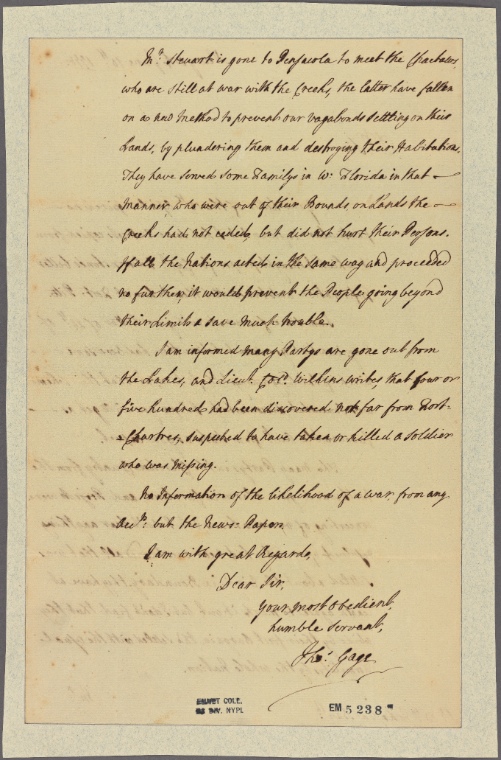 Mr. Steuart is gone to Pensacola to meet the Chactaws,
who are still at war with the Creeks, the latter have fallen
on a new Method to prevent our vagabonds settling on their
Lands, by plundering them and destroying their Habitations.
They have served some Familys in W. Florida in that
manner who were out of their Bounds on Lands the
Creeks had not ceded, but did not hurt their Persons.
If all the Nations acted in the same way and proceeded
no further, it would prevent the People going beyond
their Limits & save much trouble.
I am informed many Partys are gone out from
the Lakes, and Lieut. Colo. Wilkins writes that four or
five hundred had been discovered not far from Fort-
Chartres, suspected to have taken or killed a Soldier
who was missing.
No Information of the likelihood of a war from any
but the News-Papers
I am with great Regards,
Dear Sir,
Your most obedient,
humble Servant,
Thos. Gage
EMMET COLL.
NYPL
EM 5238